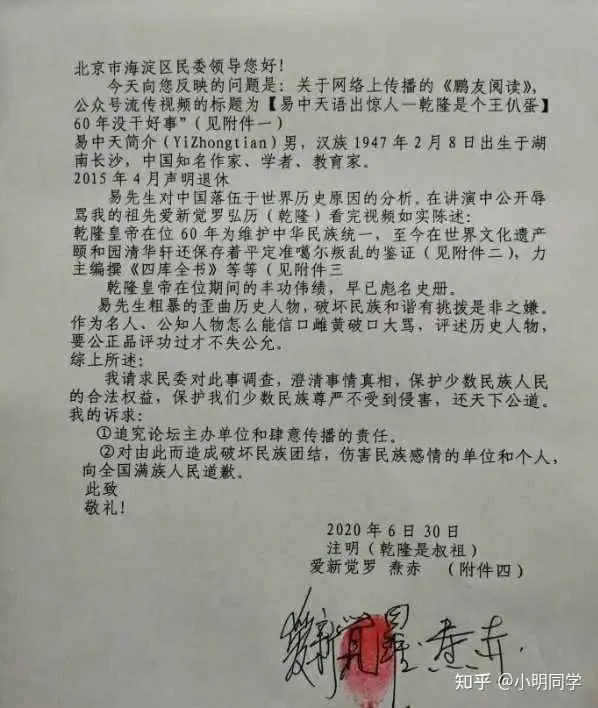 北京市海淀区民委领导您好！
今天向您反映的问题是：关于网络上传播的《鹏友阅读》，
公众号流传视频的标题为【易中天语出惊人—乾隆是个王仈蛋】
60年没干好事”（见附件一）
易中天简介（YiZhongtian）男，汉族1947年2月8日出生于湖
南长沙，中国知名作家、学者、教育家。
2015年4月声明退休
易先生对中国落伍于世界历史原因的分析。在讲演中公开辱
骂我的祖先爱新觉罗弘历（乾隆）看完视频如实陈述：
乾隆皇帝在位60年为维护中华民族统一，至今在世界文化遗产
颐和园清华轩还保存着平定准噶尔叛乱的鉴证（见附件二），力
主编撰《四库全书》等等（见附件三
乾隆皇帝在位期间的丰功伟绩，早已彪名史册。
易先生粗暴的歪曲历史人物，破坏民族和谐有挑拨是非之嫌。
作为名人、公知人物怎么能信口雌黄破口大骂，评述历史人物，
要公正品评功过才不失公允。
综上所述：
我请求民委对此事调查，澄清事情真相，保护少数民族人民
的合法权益，保护我们少数民族尊严不受到侵害，还天下公道。
我的诉求：
①追究论坛主办单位和肆意传播的责任。
②对由此而造成破坏民族团结，伤害民族感情的单位和个人，
向全国满族人民道歉。
此致
敬礼！
2020年6月30日
注明（乾隆是叔祖）
爱新觉罗 焘赤 （附件四）
爱新觉罗·焘赤
知乎 @小明同学